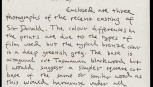 Enclosed are three
photographs of the recent casting of
Sir Donald. The colour differences in
the prints are due to the types of
film used but the typical bronze colour
is deep greenish grey. The base is
Tasmanian blackwood, but I
would suggest a simpler square cut
base of the same or similar wood as
this would harmonise under all